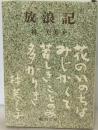 放浪記
林芙美子
花のいのちは
みじかくて
苦しきことのみ
多かりき
林芙美子